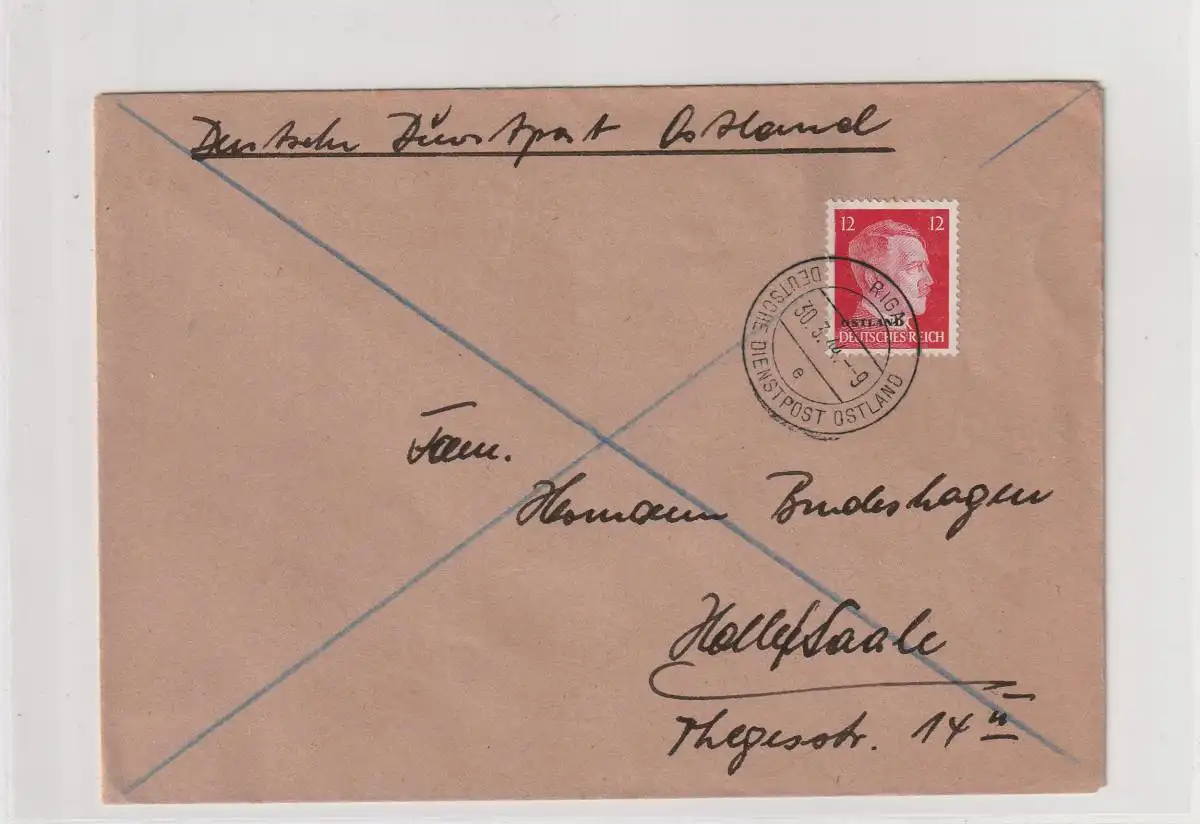 Deutsche Dienstpost Ostland
12 12
OSTLAND
DEUTSCHES REICH
RIGA
30.3.44.--9
e
DEUTSCHE DIENSTPOST OSTLAND
Fam.
Hermann Bundeshagen
Halle/Saale
14 II